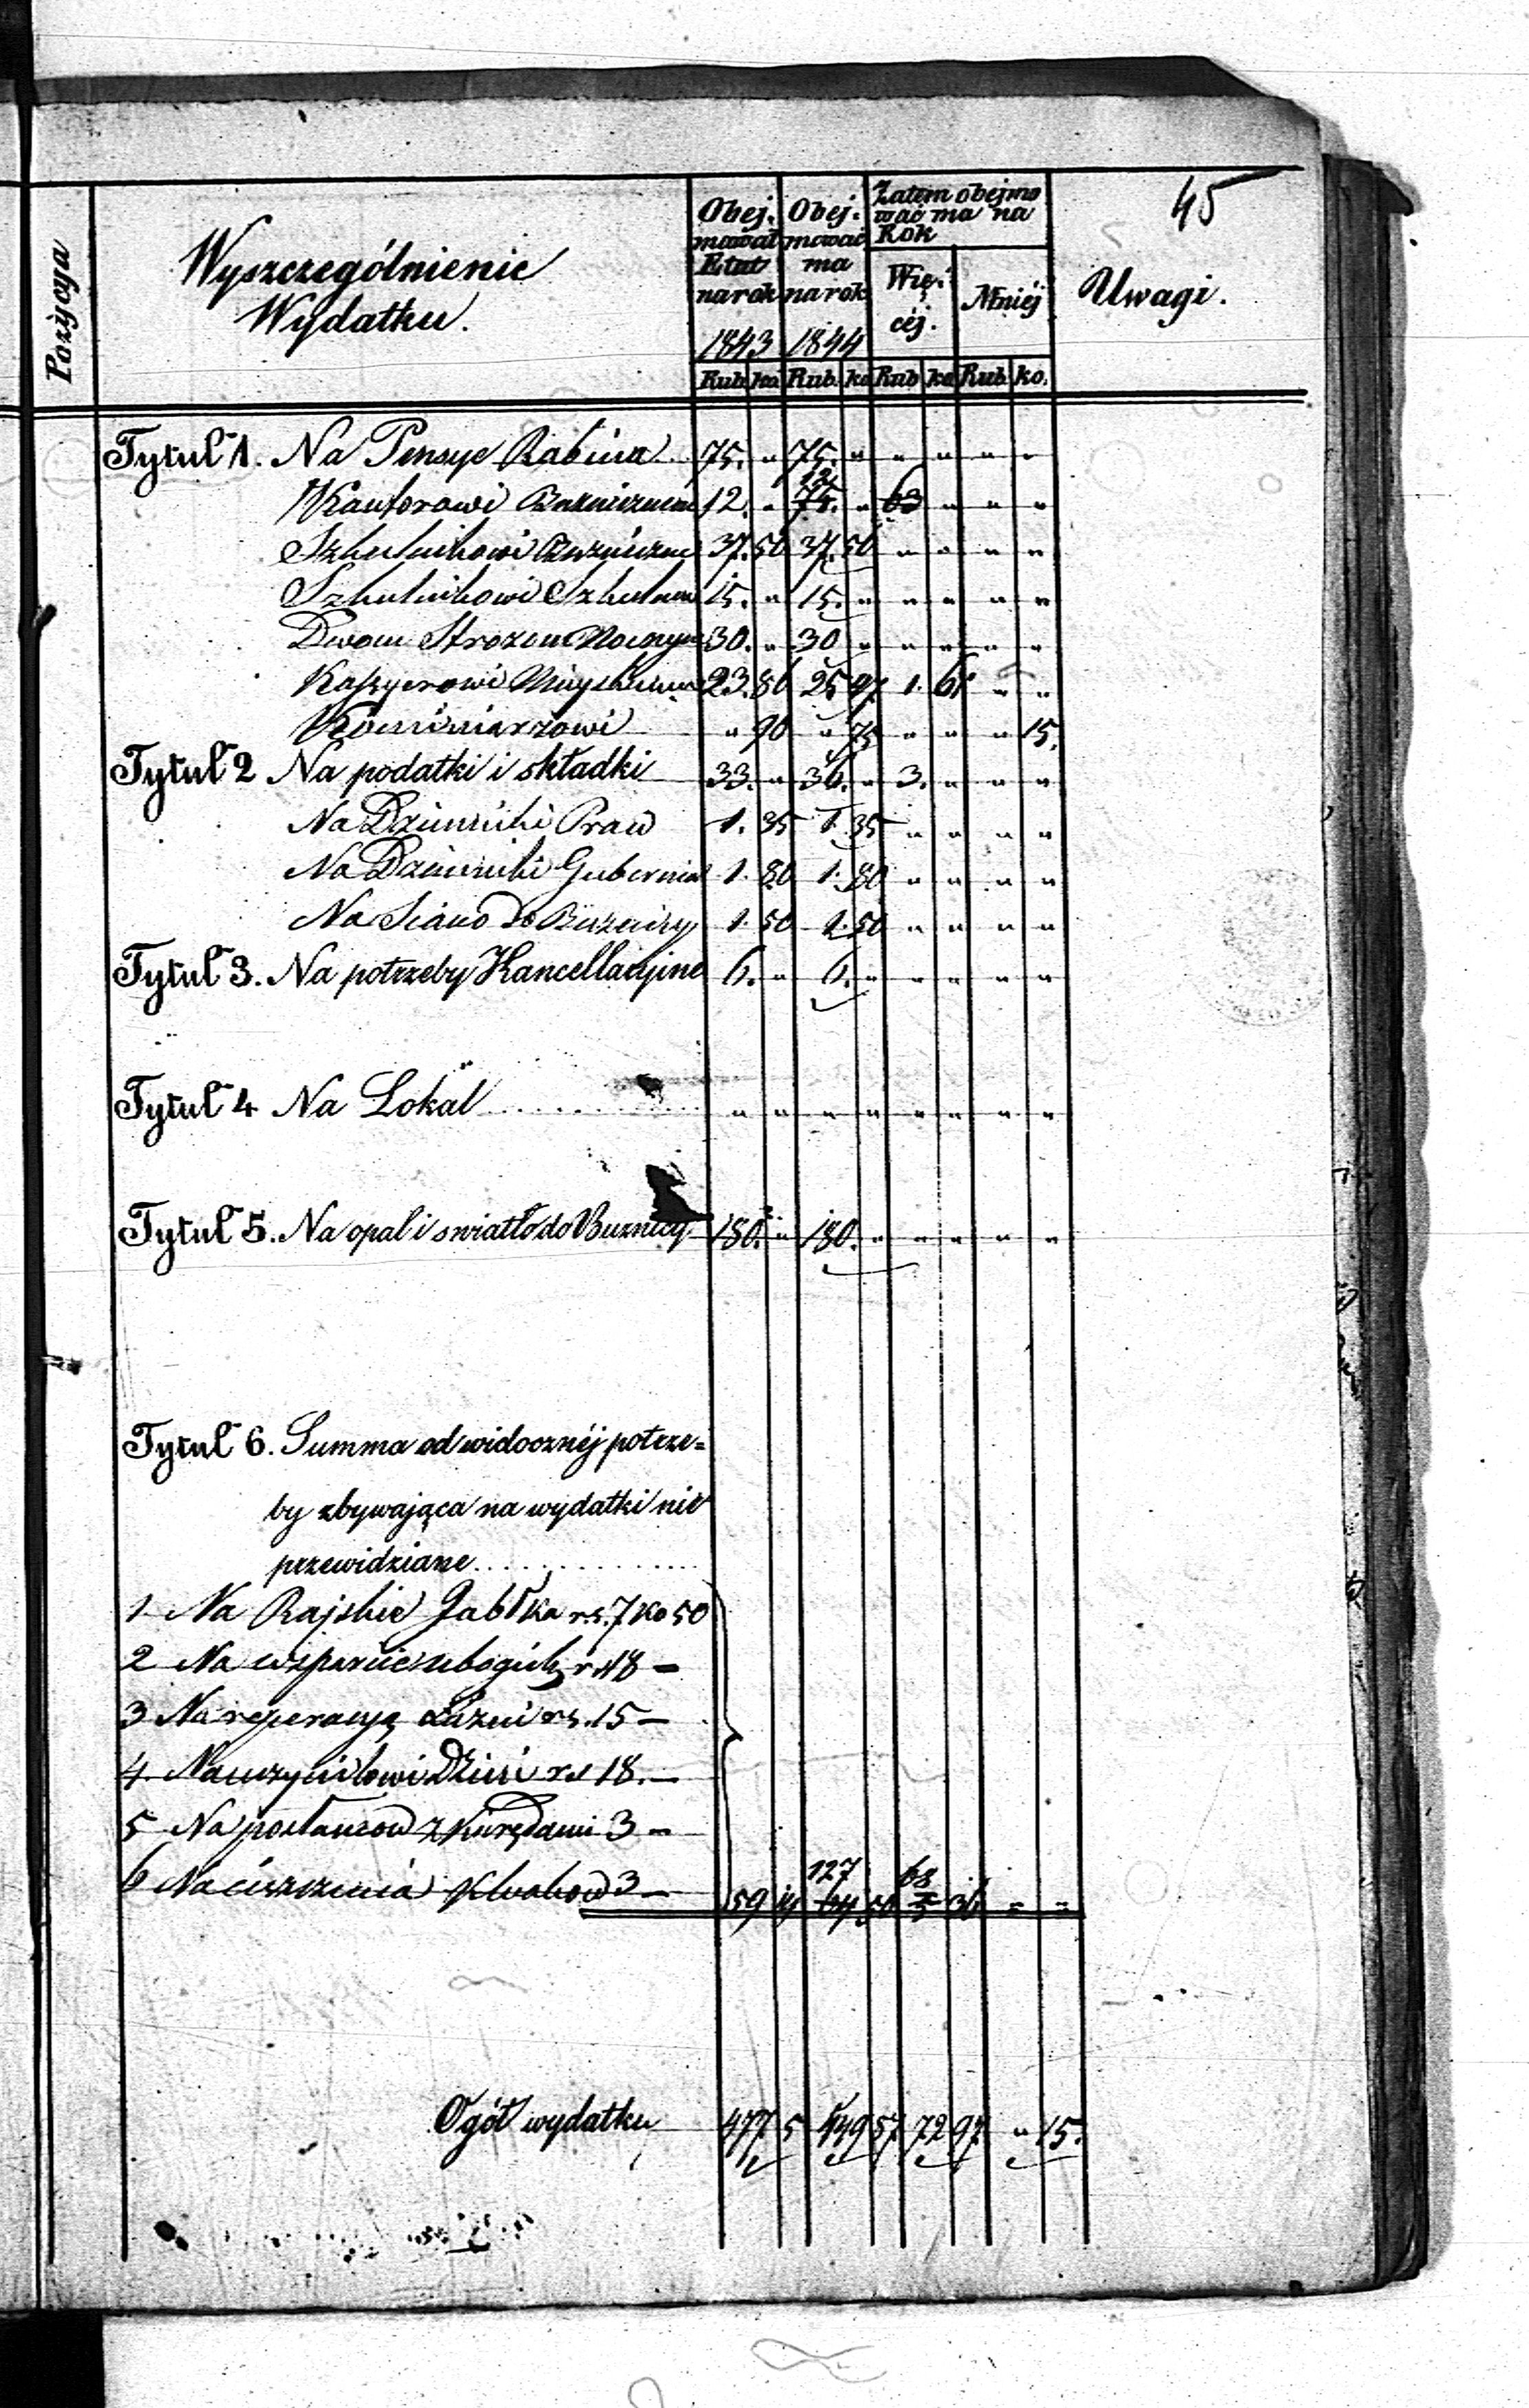 45
Pozycya
Wyszczególnienie
Wydatku.
Obej. mował Etat na rok 1843
Obej. mować ma na rok 1844
Zatem obejmo wać ma na Rok
Wię. céj.
Mniéj
Uwagi.
Rub. ko. Rub. ko Rub ko Rub. ko.
Tytuł 1. Na Pensye Rabina 75. " 75. " " " " "
Kantorowi 12. " 75. 12 " 63 " " "
Szkulnikowi 37. 50 37. 50 " " " "
Szkulnikowi 15. " 15. " " " " "
Dwom Strozom Nocnym 30. " 30 " " " " "
Kassyerowi 23. 86 25 47 1. 61 " "
Kominiarzowi " 90 " 75 " " " 15.
Tytuł 2 Na podatki i składki 33. " 36. " 3. " " "
Na Dzienniki Praw 1. 35 1. 35 " " " "
Na Dzienniki Gubernia 1. 80 1. 80 " " " "
Na Siano do 1. 50 1. 50 " " " "
Tytuł 3. Na potrzeby Kancellaryine 6. " 6. " " " " "
Tytuł 4 Na Lokal " " " " " " " "
Tytuł 5. Na opał i swiatło do Buznicy 180. " 180. " " " " "
Tytuł 6. Summa od widocznéj potrze=
by zbywająca na wydatki nie
przewidziane
1 Na Rajskie Jabłka rs. 7 Ko 50
2 Na wsparcie ubogich rs 18 -
3 Na reperacyą Łazni rs. 15 -
4. Nauczycielowi Dzieci rs 18. -
5 Na posłancow z Kurędami 3 -
6 Na 3 - 59 127 64 68 5 36 " "
Ogół wydatku 477 5 57 72 97 " 15.